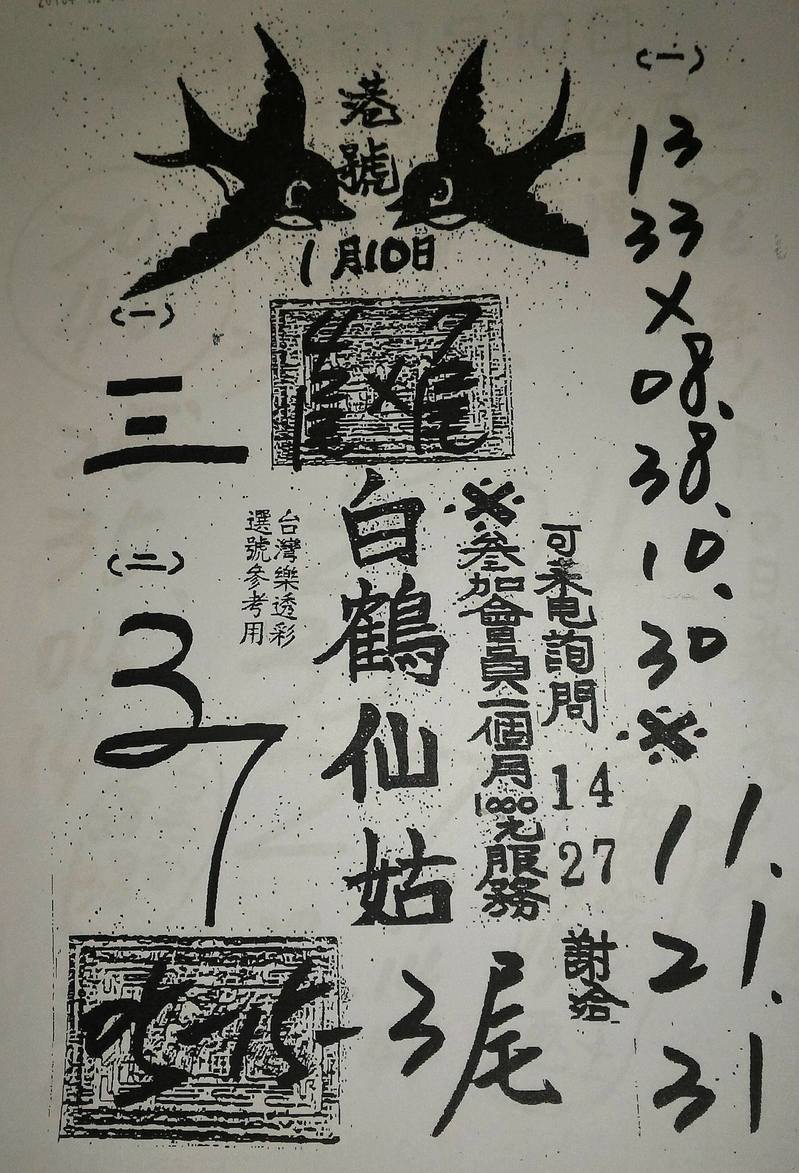 港
號
1月10日
(一)
三
(二)
3
7
台灣樂透彩
選號參考用
白鶴仙姑
※叄加會員一個月1000元服務
可来电詢問
14
27
謝洽
05-15-3尾
(一)
13
33
X
08.
38.
10.
30
※
11.
21.
31